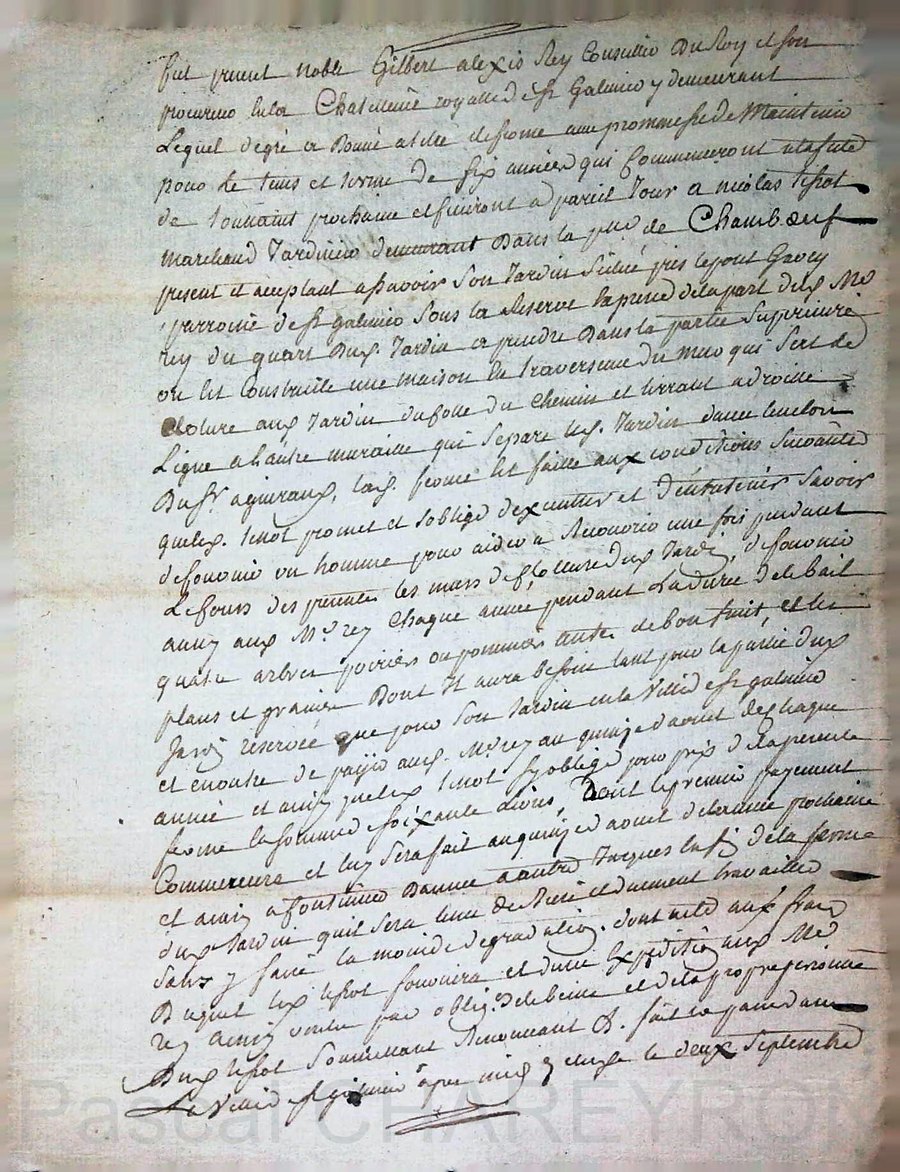 fut present noble Gilbert alexis Rey Conseillier Du Roy et son
procureur en la Chatellenie royalle de st Galmier y demeurant
Lequel de gré a Donné a titre de ferme avec promesse de Maintenir
pour le tems et terme de six années qui Commenceront a la fete
de toussaint prochaine et finiront a pareil Jour a nicolas
marchand Jardinier demeurant Dans la de Chambœuf
present et acceptant assavoir Son Jardin Situé près le pont
parroisse de st galmier Sous la Reserve de la part dud. Mr
rey du quart Dud. Jardin a prendre Dans la partie Superieure
ou est Construitte une maison la traversene du mur qui Sert de
Cloture aud. Jardin du Costé du Chemin et tirrant a droitte
Ligne a lautre muraille qui Separe led. Jardin
Du Sr. lad. ferme est faitte aux conditions Suivantes
que led. promet et Soblige dexecutter et Dentretenir Savoir
de fournir un homme pour aider a une fois pendant
Le Cours des presentes les murs de Cloture dud. Jardin, de fournir
aud. Mr rey Chaque année pendant La Durée de le bail
quatre arbres poiriers ou pommiers de bon fruit, et les
plans et graines Dont Il aura besoin tant pour la partie dud.
Jardin reservée que pour Son Jardin en la Ville de st galmier
et en outre de payer aud. Mr rey au quinze d'aoust de chaque
année et ainsi que led. Soblige pour prix de la presente
ferme la Somme de Soixante Livres, Dont le premier payement
Commencera et luy Sera fait au quinze d'aoust de lannée prochaine
et ainsi a Continuer Dannée a autre Jusques la fin de la ferme
dud. Jardin quil Sera tenu de et duement travailler
Sans y faire la moindre degradation. dont acte aux frais
Duquel led. fournira et d'une Expedition aud. Mr
rey ainsi par oblig.on de biens et de la propre personne
Dud. Soumissions Renonciations &. fait et passé dans
La Ville de st galmier apres midy le deux Septembre
Pascal CHAREYRON